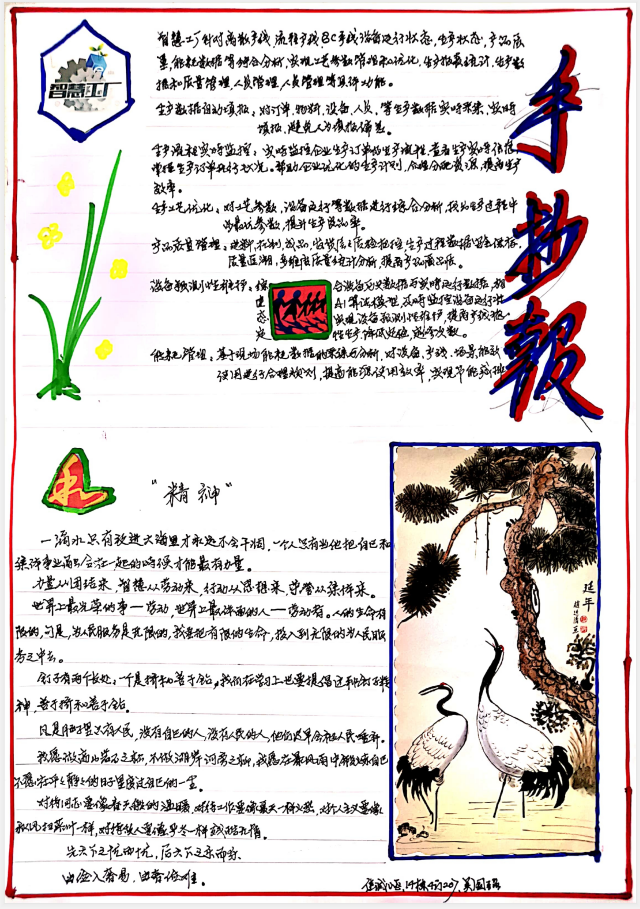 智慧工厂
手抄报
智慧工厂针对离散产线、流程产线BC产线设备运行状态,生产状态,产品质
量,能耗数据等综合分析,实现工艺参数管理和优化,生产报表统计,生产数
据和质量管理,人员管理,人员管理等见详功能。
生产数据自动填报:对订单、物料、设备、人员,等生产数据实时采集,实时
填报,避免人为填报偏患。
生产流程实时监控:实时监控企业生产订单的生产流程,查看生产实时信息
掌握生产订单执行状况。帮助企业优化的生产计划,合理分配资源,提高生产
效率。
生产工艺优化:对工艺参数,设备运行等数据进行综合分析,找出生产过程中
的最优参数,提升生产良品率。
产品质量管理:
生产过程数据完全保存,
质量追溯,多维度质量统计分析,提高产品良品质。
设备预测性维护:
设备历史数据与实时运行数据,
AI算法模型,及时监控设备运行状
实现设备预测性维护,提高产线
性生产,降低
次数。
能耗管理:基于现场能耗数据的采集与分析,对设备,产线,场景能效
使用进行合理规划,提高能源使用效率,实现节能减排
礼
“精神”
一滴水只有放进大海里才永远不会干涸,一个人只有当他把自己和
集体事业融合在一起的时候才能最有力量。
力量从团结来,智慧从劳动来,行动从思想来,荣誉从集体来。
世界上最光荣的事一劳动,世界上最体面的人一劳动者。人的生命有
限的,可是,为人民服务是无限的,我要把有限的生命,投入到无限的为人民服
务之中去。
钉子有两个长处:一个是挤和善于钻,我们在学习上也要提倡这种钉子精
神,善于挤和善于钻。
凡是脑子里只有人民,没有自己的人,
我愿做高山岩石之松,不做湖岸河旁之柳,我愿在暴风雨中
自己
不愿在平平静静的日子里度过自己的一生。
对待同志要像春天般的温暖,对待工作要像夏天一样火热,对个人主义要像
秋风扫落叶一样,对待敌人要像严冬一样残酷无情。
先天下之忧而忧,后天下之乐而乐。
由俭入奢易,由奢入俭难。
延年